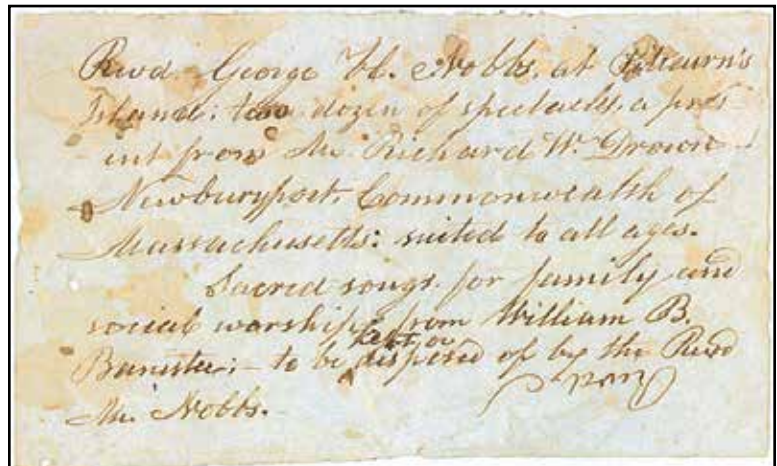 Revd. George H. Nobbs, at Pitcairn's
Island: two dozen of spectacles, a pres
ent from Mr. Richard W. Drown -
Newburyport, Commonwealth of
Massachusetts: suited to all ages.
Sacred songs, for family and
social worship, from William B.
kept, or
Bannister; - to be disposed of by the Revd
Mr. Nobbs.